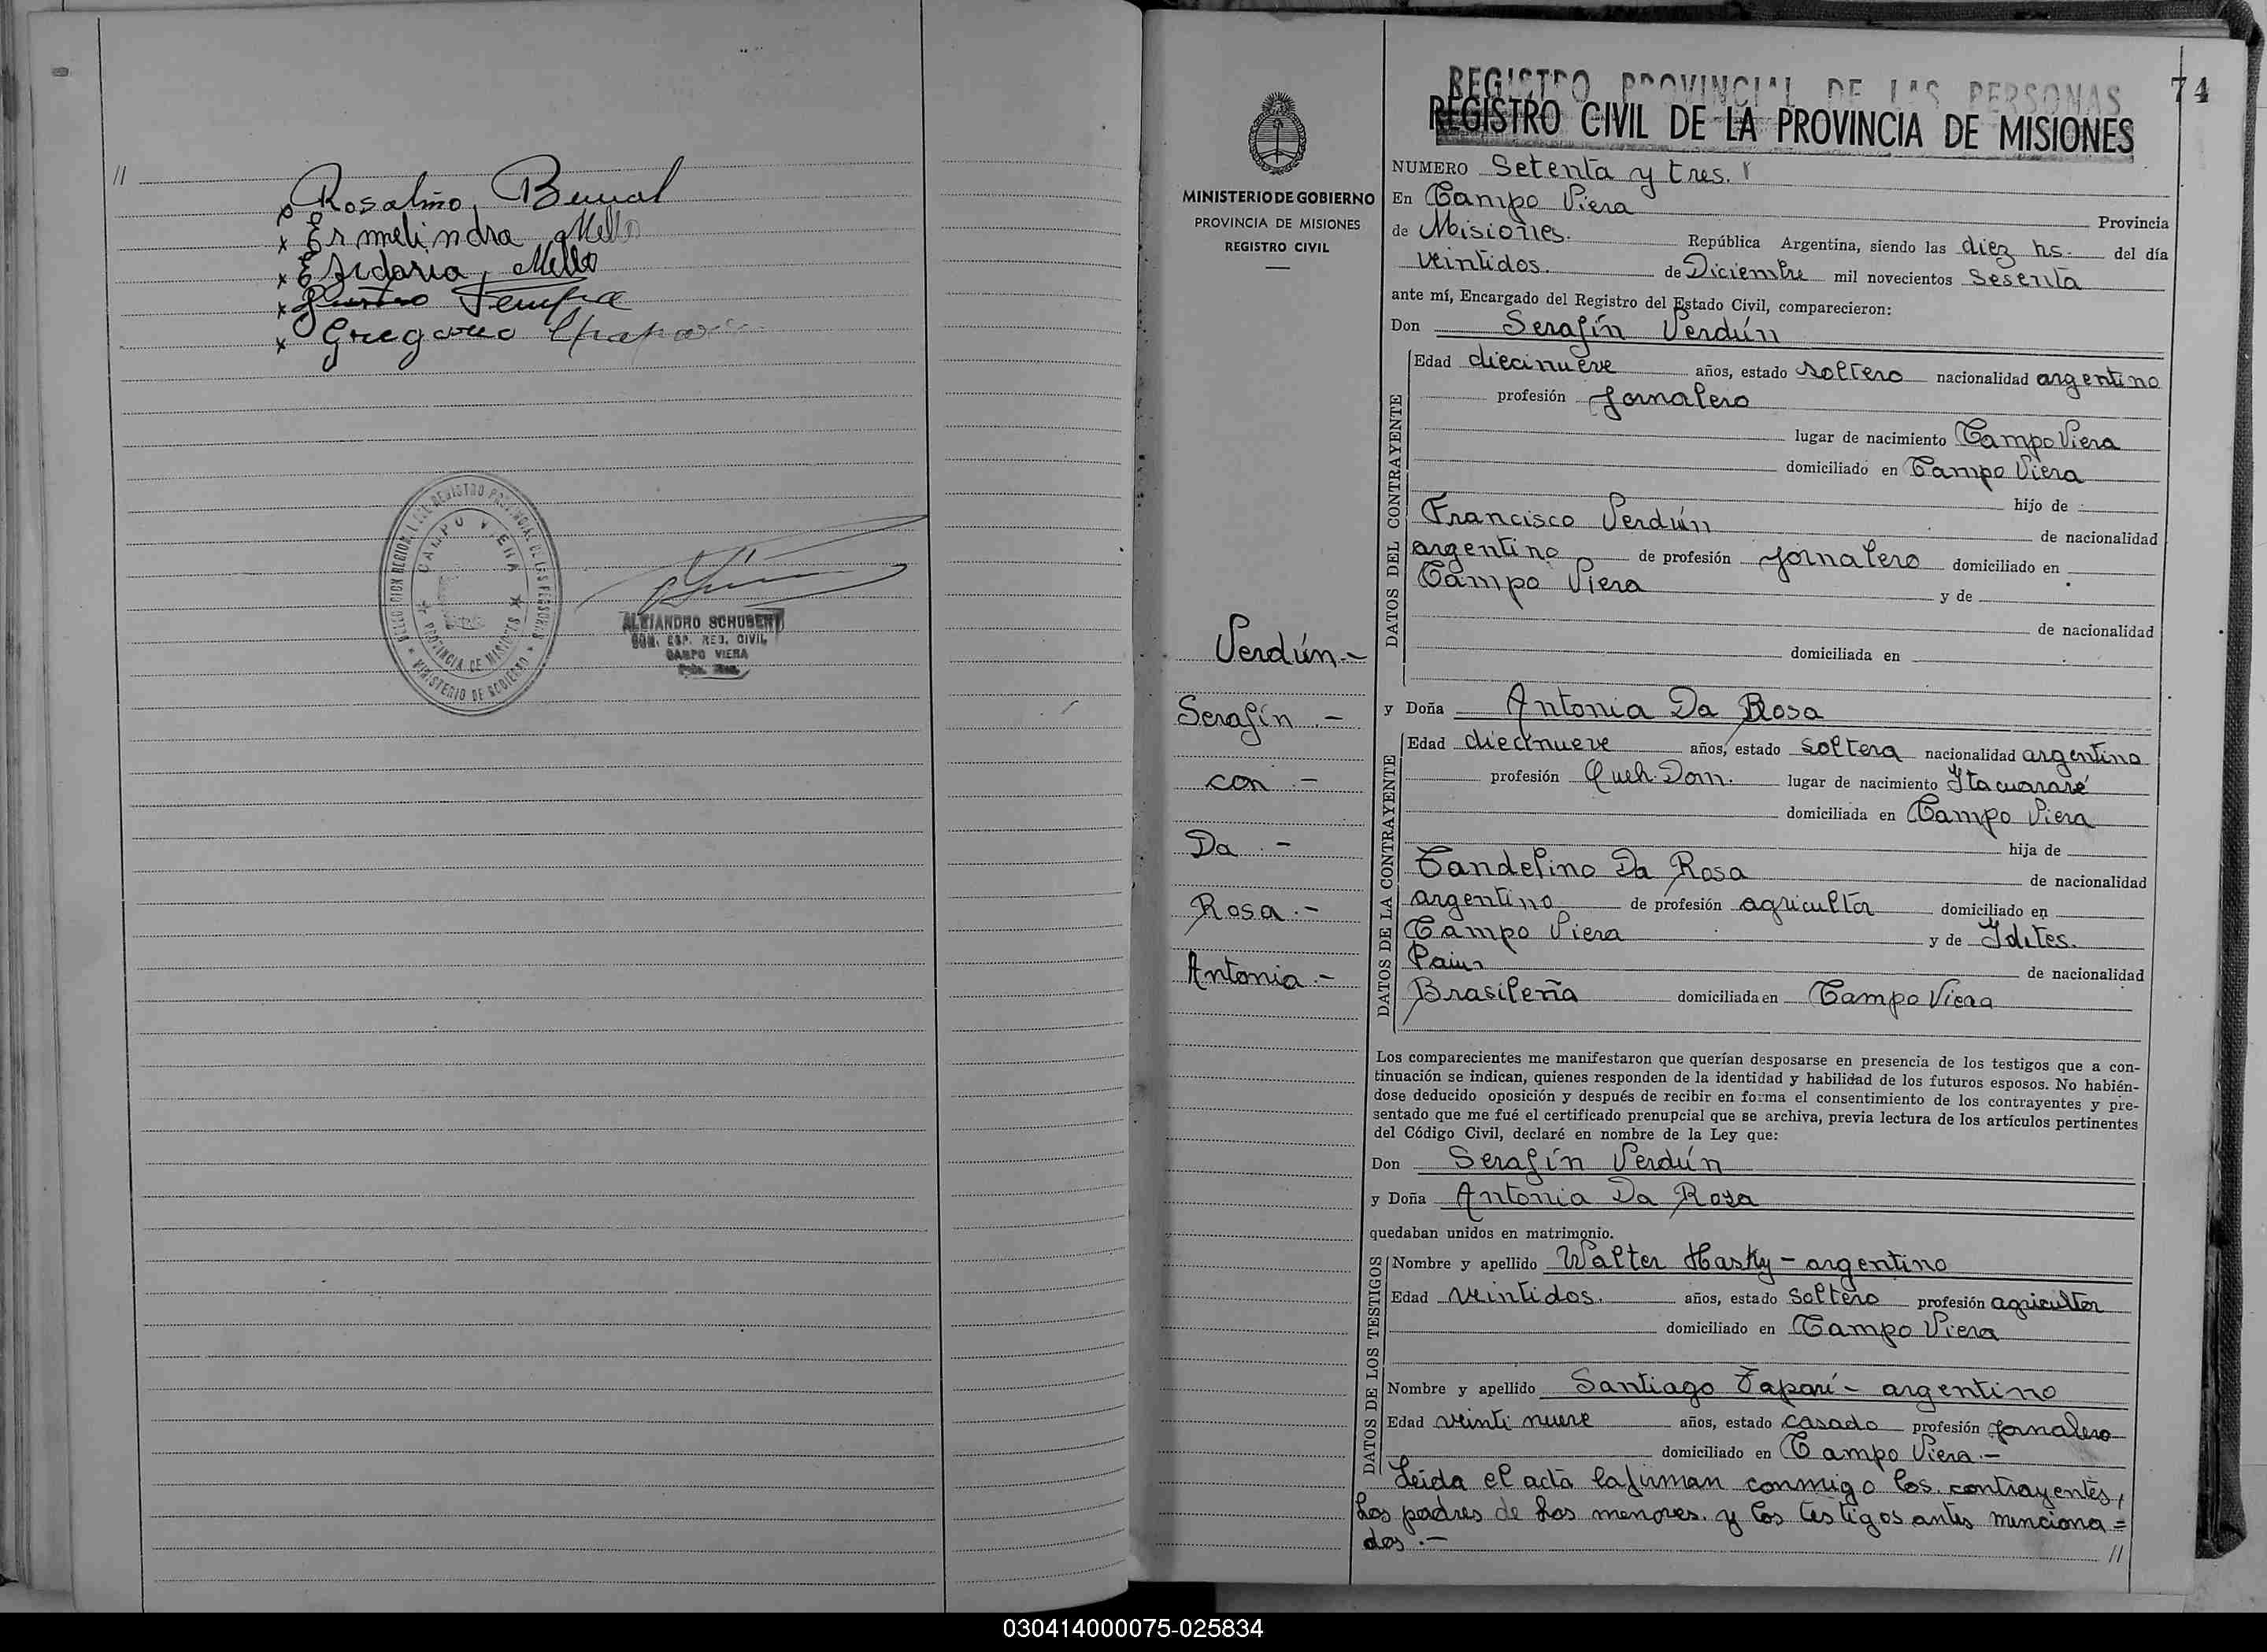 //
Rosalino Bernal
x Ermelindra Mello
x Mello
x
x Gregorio
CAMPO VIERA
PROVINCIA DE MISIONES
MINISTERIO DE GOBIERNO
ALEJANDRO SCHUBERT
REG. CIVIL
CAMPO VIERA
74
REGISTRO PROVINCIAL DE LAS PERSONAS
REGISTRO CIVIL DE LA PROVINCIA DE MISIONES
MINISTERIO DE GOBIERNO
PROVINCIA DE MISIONES
REGISTRO CIVIL
NUMERO Setenta y tres.
En Campo Viera Provincia
de Misiones. República Argentina, siendo las diez hs. del día
veintidos. de Diciembre mil novecientos sesenta
ante mí, Encargado del Registro del Estado Civil, comparecieron:
Don Serafín Verdún
DATOS DEL CONTRAYENTE
Edad diecinueve años, estado soltero nacionalidad argentino
profesión Jornalero
lugar de nacimiento Campo Viera
domiciliado en Campo Viera
hijo de
Francisco Verdún de nacionalidad
argentino de profesión Jornalero domiciliado en
Campo Viera y de
de nacionalidad
domiciliada en
Verdún.-
Serafín -
con -
Da -
Rosa.-
Antonia.-
y Doña Antonia Da Rosa
DATOS DE LA CONTRAYENTE
Edad diecinueve años, estado soltera nacionalidad argentina
profesión Queh. Dom. lugar de nacimiento Itacuararé
domiciliada en Campo Viera
hija de
Candelino Da Rosa de nacionalidad
argentino de profesión agricultor domiciliado en
Campo Viera y de
de nacionalidad
Brasileña domiciliada en Campo Viera
Los comparecientes me manifestaron que querían desposarse en presencia de los testigos que a con-
tinuación se indican, quienes responden de la identidad y habilidad de los futuros esposos. No habién-
dose deducido oposición y después de recibir en forma el consentimiento de los contrayentes y pre-
sentado que me fué el certificado prenupcial que se archiva, previa lectura de los artículos pertinentes
del Código Civil, declaré en nombre de la Ley que:
Don Serafín Verdún
y Doña Antonia Da Rosa
quedaban unidos en matrimonio.
DATOS DE LOS TESTIGOS
Nombre y apellido Walter Hasky - argentino
Edad veintidos. años, estado soltero profesión agricultor
domiciliado en Campo Viera
Nombre y apellido Santiago Taparí - argentino
Edad veinti nueve años, estado casado profesión Jornalero
domiciliado en Campo Viera.-
Leida el acta la firman conmigo los contrayentes,
los padres de los menores. y los testigos antes menciona=
dos.- //
030414000075-025834